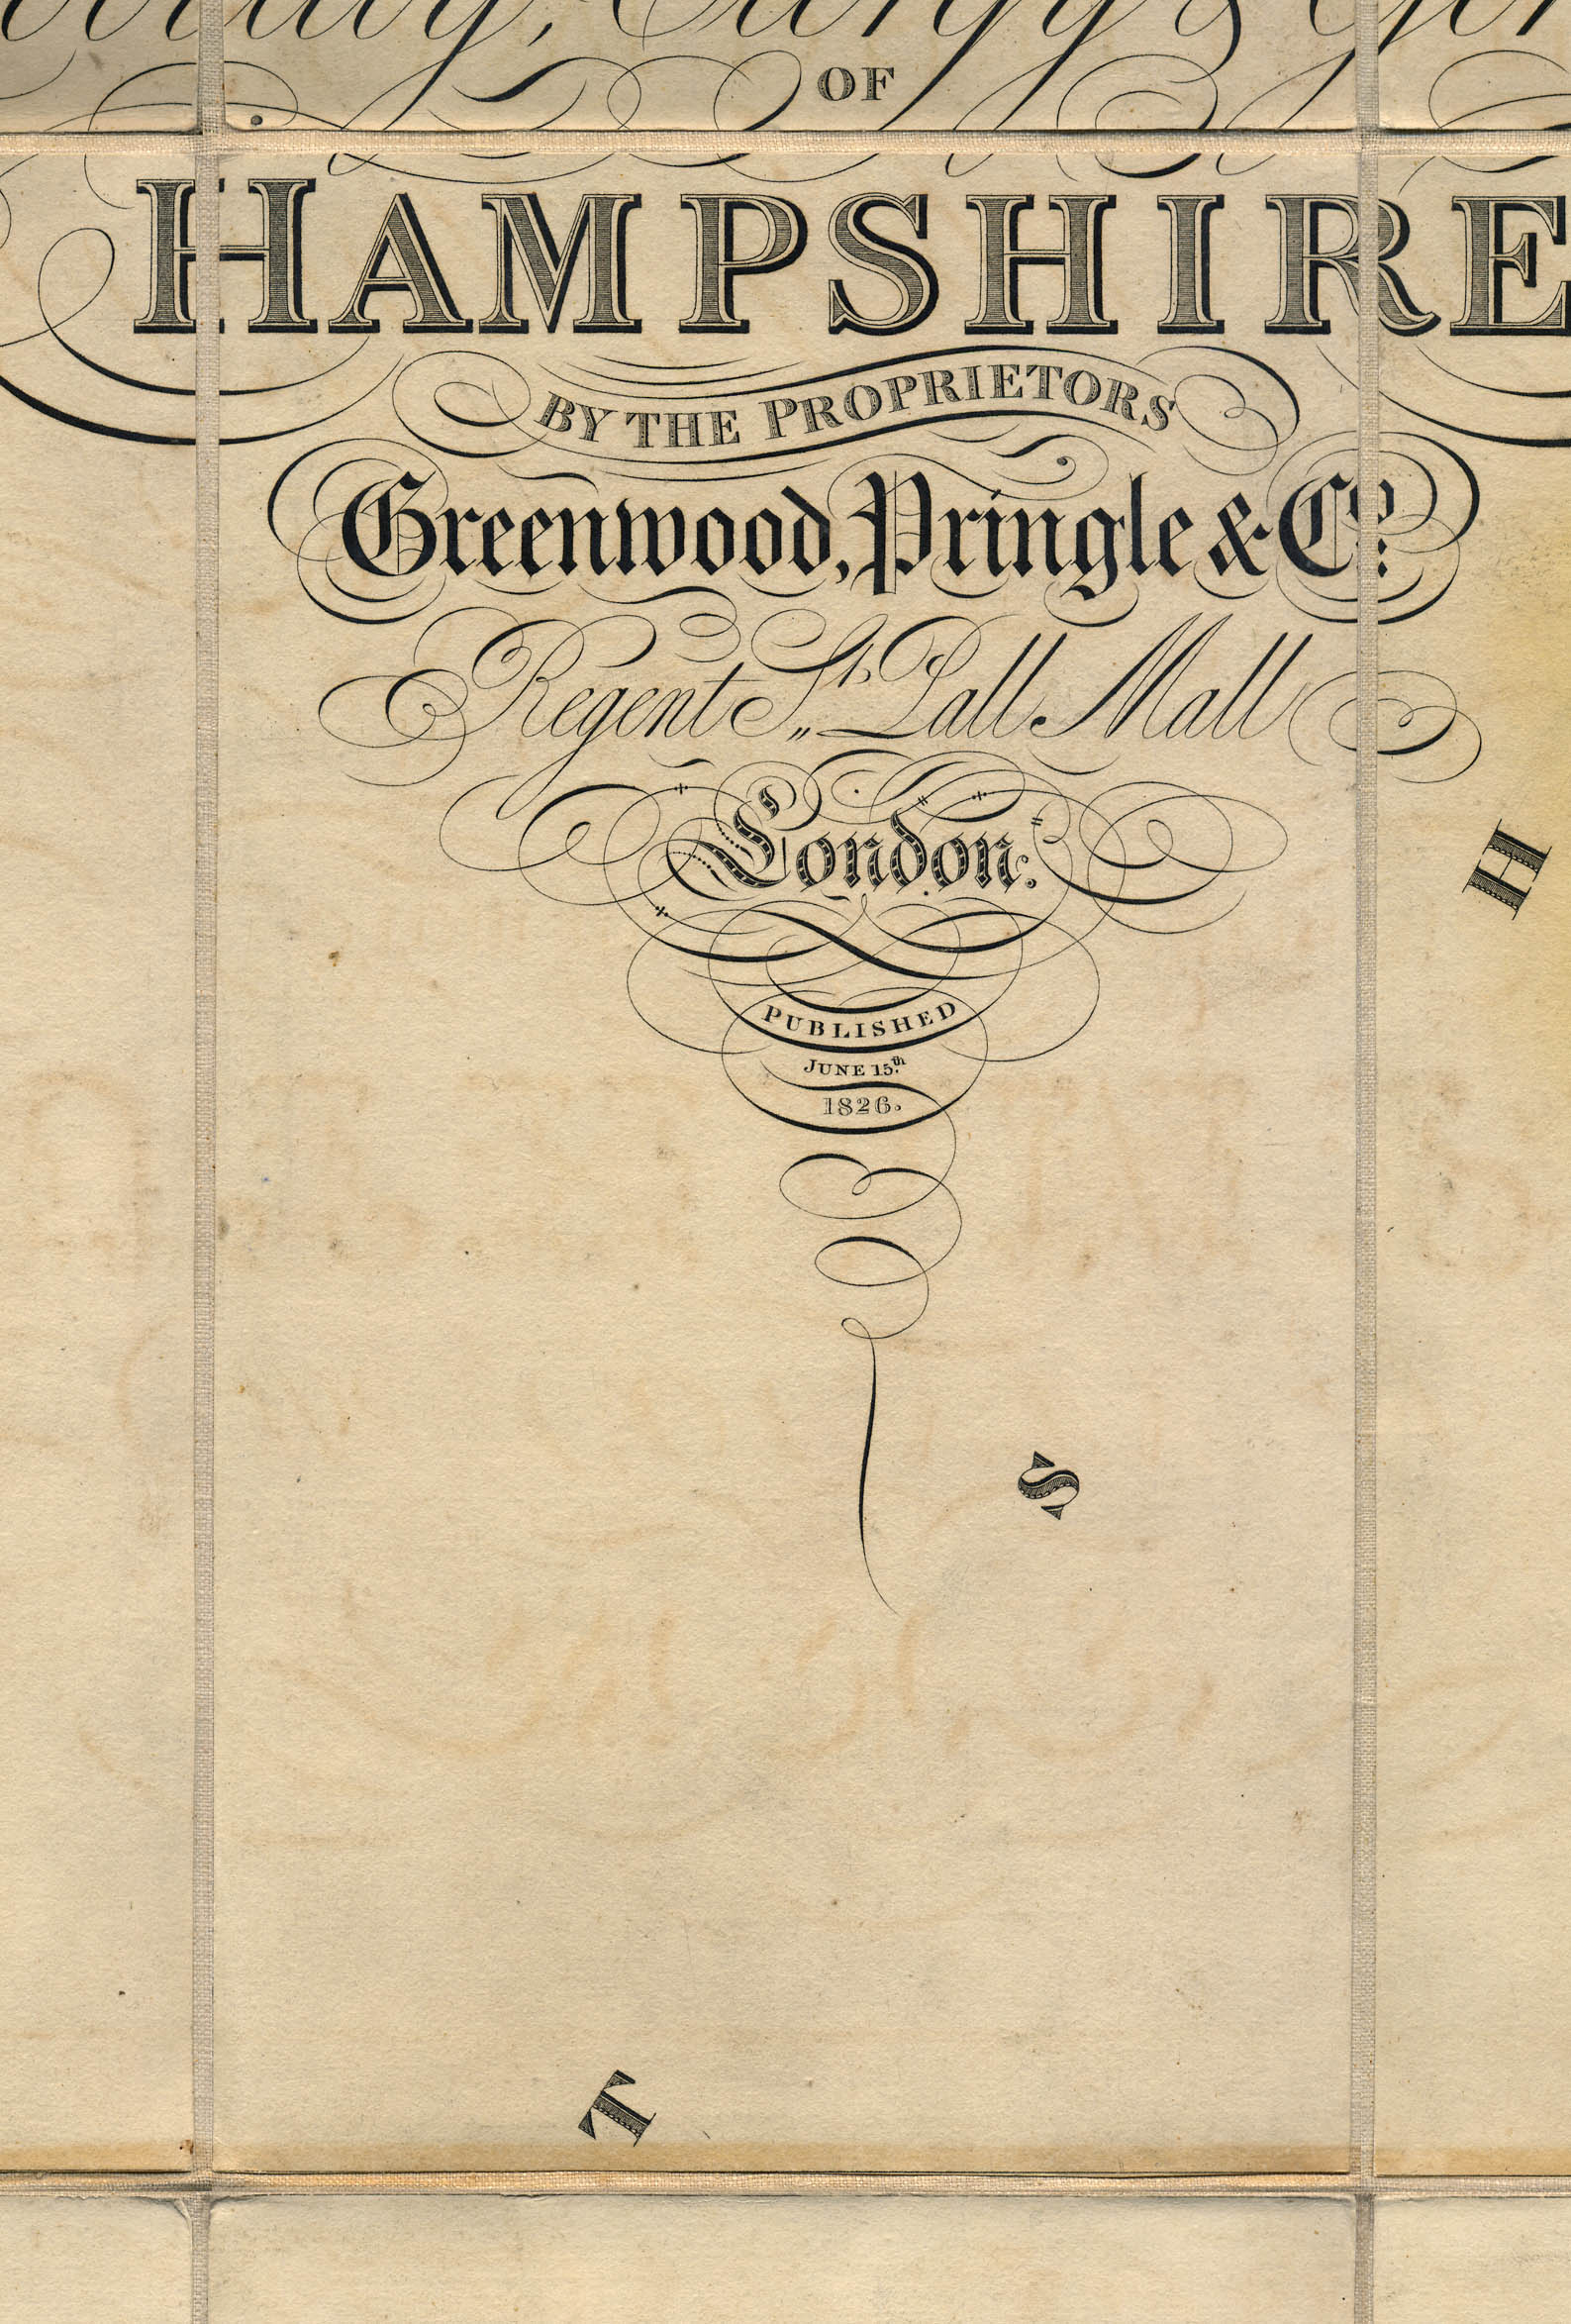 OF
HAMPSHIRE
BY THE PROPRIETORS
Greenwood, Pringle & Co.
Regent St. Pall Mall
London.
PUBLISHED
JUNE 15th
1826.
H
S
T